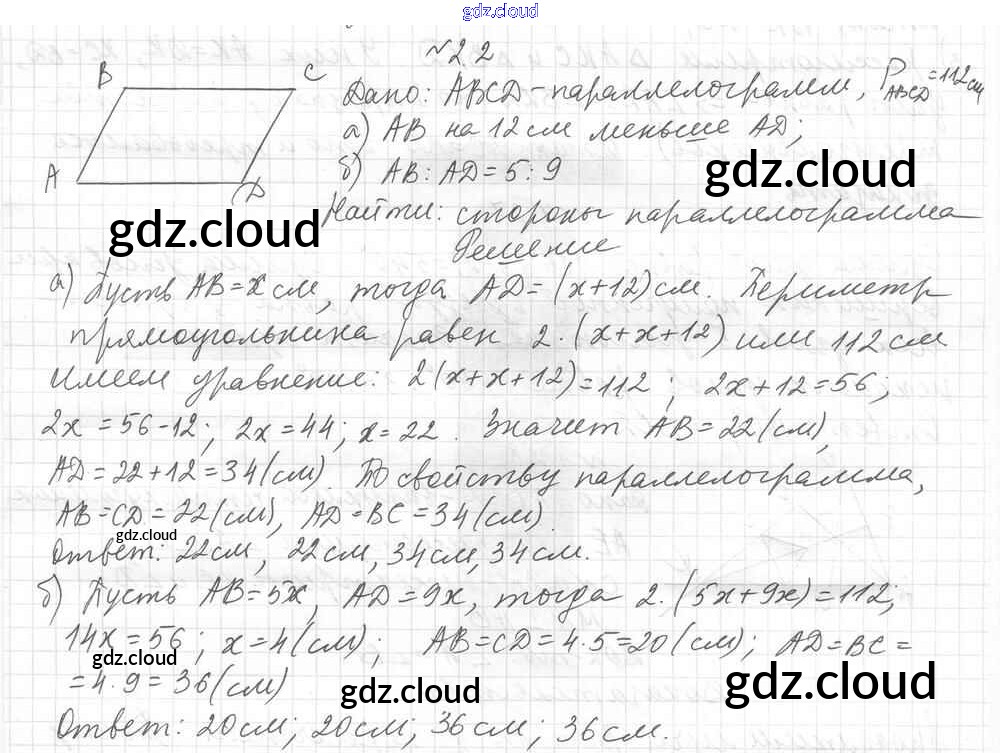 gdz.cloud
№ 2.2
B C
A D
Дано: ABCD-параллелограмм, P ABCD = 112 см
а) AB на 12 см меньше AD;
б) AB : AD = 5 : 9
gdz.cloud
Найти: стороны параллелограмма
gdz.cloud
Решение
а) Пусть AB = x см, тогда AD = (x+12) см. Периметр
прямоугольника равен 2·(x+x+12) или 112 см
Имеем уравнение: 2(x+x+12)=112; 2x+12=56;
2x=56-12; 2x=44; x=22. Значит AB=22(см),
AD=22+12=34(см). По свойству параллелограмма,
AB=CD=22(см), AD=BC=34(см).
gdz.cloud
Ответ: 22см, 22см, 34см, 34см.
б) Пусть AB=5x, AD=9x, тогда 2·(5x+9x)=112;
14x=56; x=4(см); AB=CD=4·5=20(см); AD=BC=
gdz.cloud
=4·9=36(см)
gdz.cloud
gdz.cloud
Ответ: 20см; 20см; 36см; 36см.